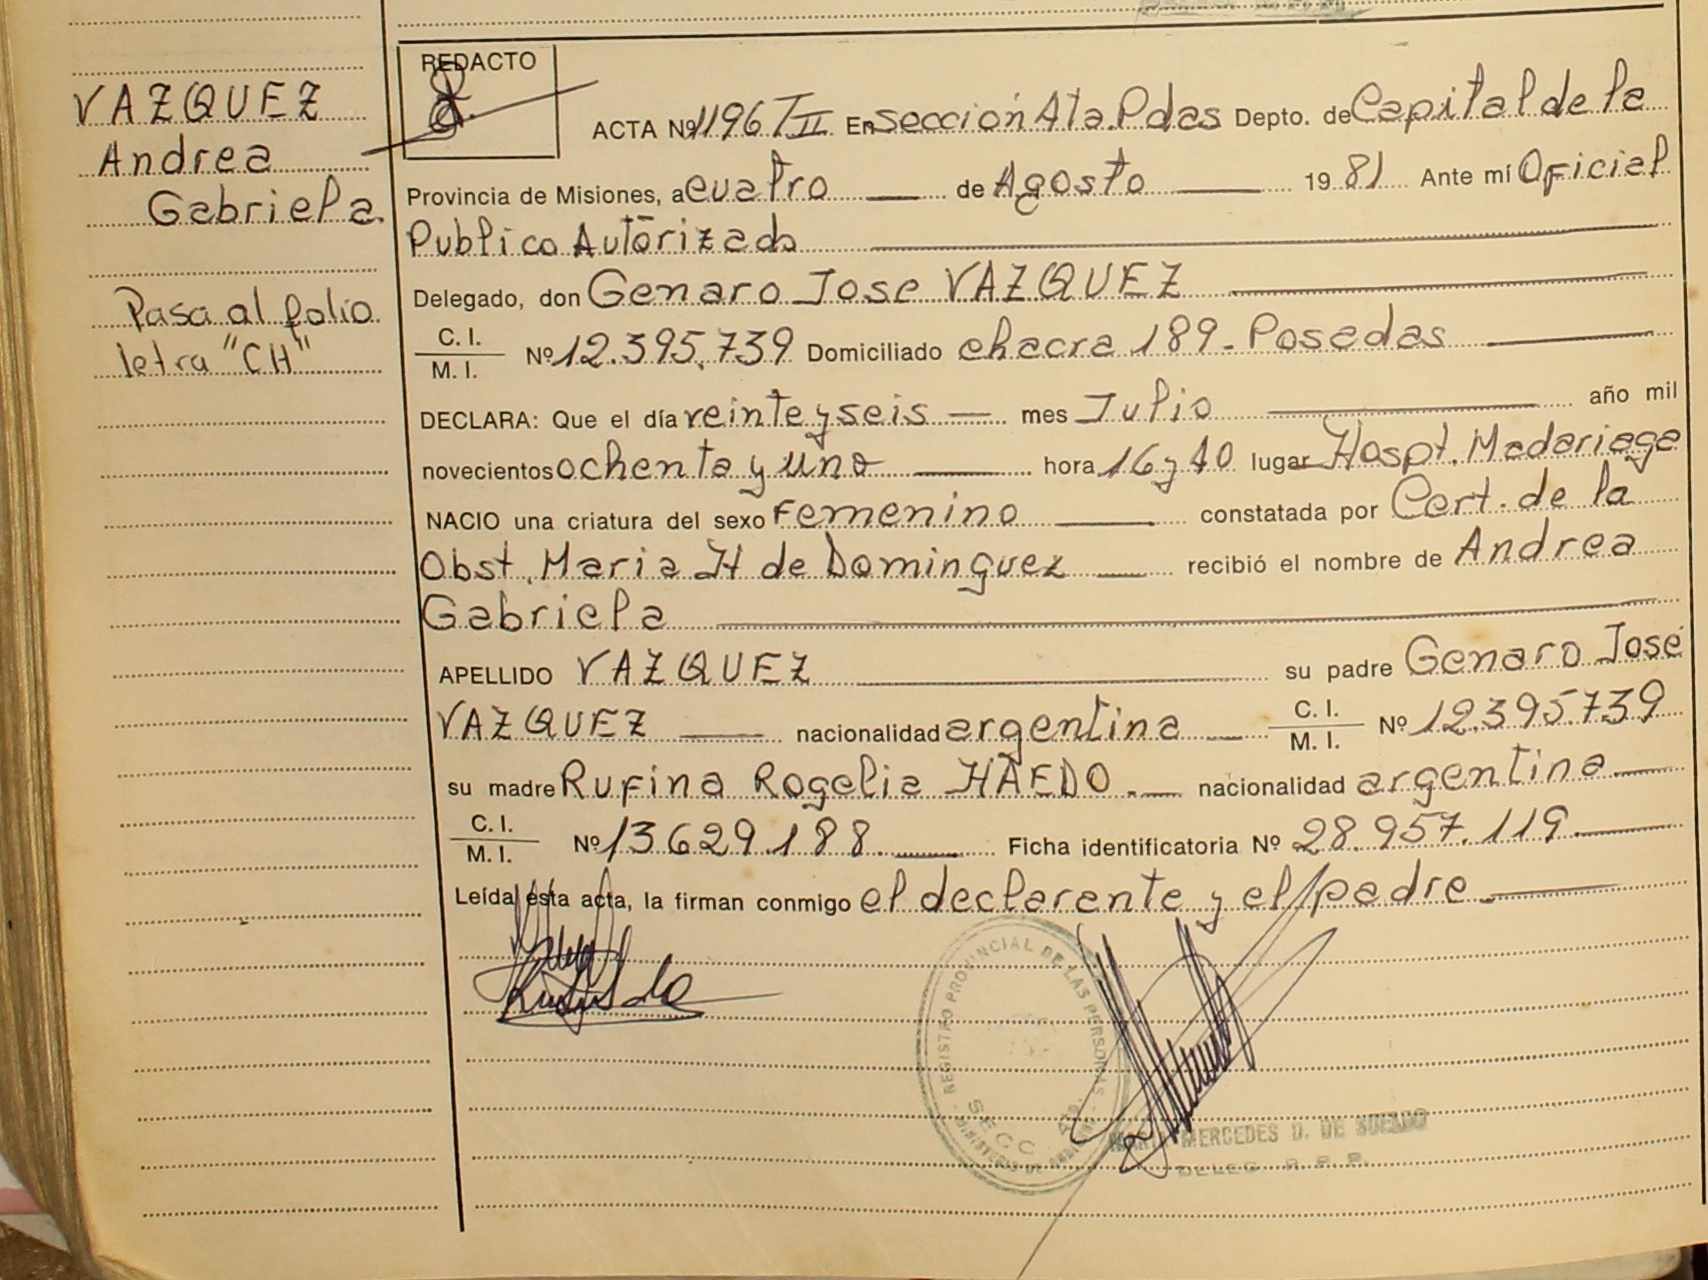 VAZQUEZ
Andrea
Gabriela.
Pasa al folio
letra "CH"
REDACTO
ACTA Nº 1196 T II En sección 4ta. Pdas Depto. de Capital de la
Provincia de Misiones, a cuatro de Agosto 1981 Ante mí Oficial
Publico Autorizado
Delegado, don Genaro Jose VAZQUEZ
C. I.
M. I. Nº 12.395.739 Domiciliado chacra 189 - Posadas
DECLARA: Que el día veinte y seis mes Julio año mil
novecientos ochenta y uno hora 16 y 40 lugar Hospt. Madariaga
NACIO una criatura del sexo femenino constatada por Cert. de la
Obst. Maria H de Dominguez recibió el nombre de Andrea
Gabriela
APELLIDO VAZQUEZ su padre Genaro José
VAZQUEZ nacionalidad argentina C. I.
M. I. Nº 12.395.739
su madre Rufina Rogelia HAEDO. nacionalidad argentina
C. I.
M. I. Nº 13629.188. Ficha identificatoria Nº 28.957.119
Leída esta acta, la firman conmigo el declarante y el padre.
REGISTRO PROVINCIAL DE LAS PERSONAS
SECC 4ta.
MINISTERIO DE
MERCEDES D. DE
DELEG. R. P. P.